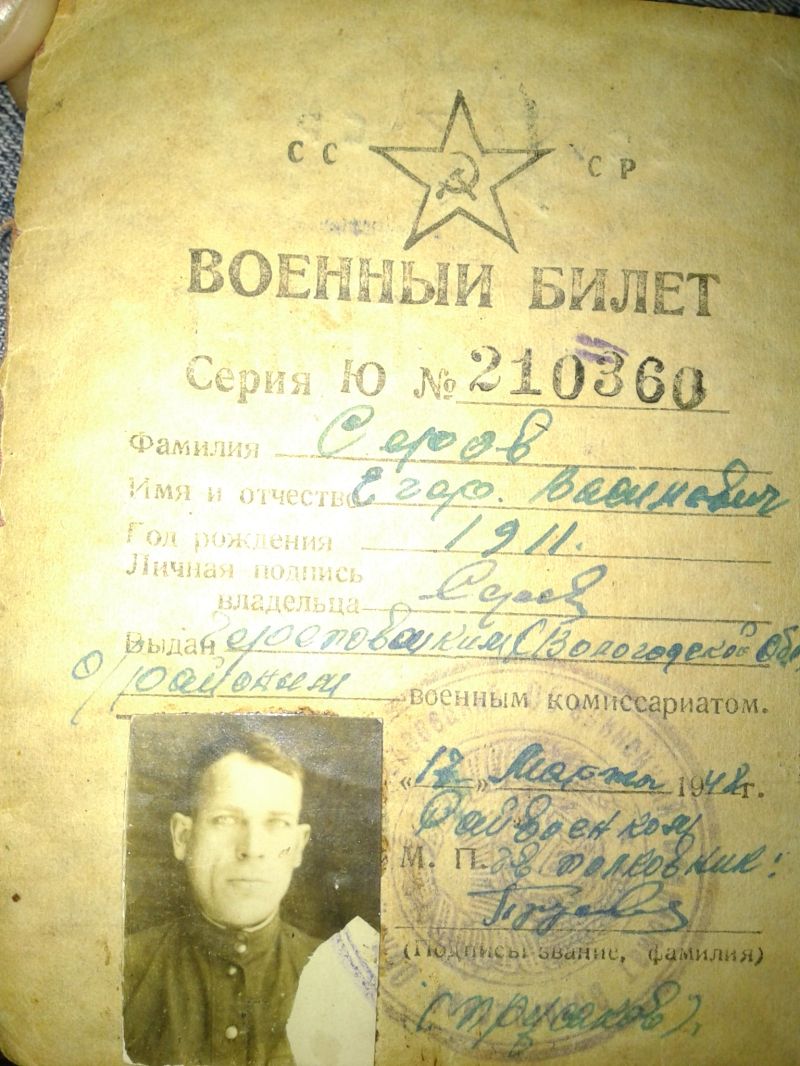 СС СР
ВОЕННЫЙ БИЛЕТ
Серия Ю № 210360
Фамилия Серов
Имя и отчество Егор. Васильевич
Год рождения 1911.
Личная подпись
владельца Серов
Выдан (Вологодской обл,
районным военным комиссариатом.
Марта 1948 г.
Райвоенком
М. П. полковник:
(Подпись, звание, фамилия)